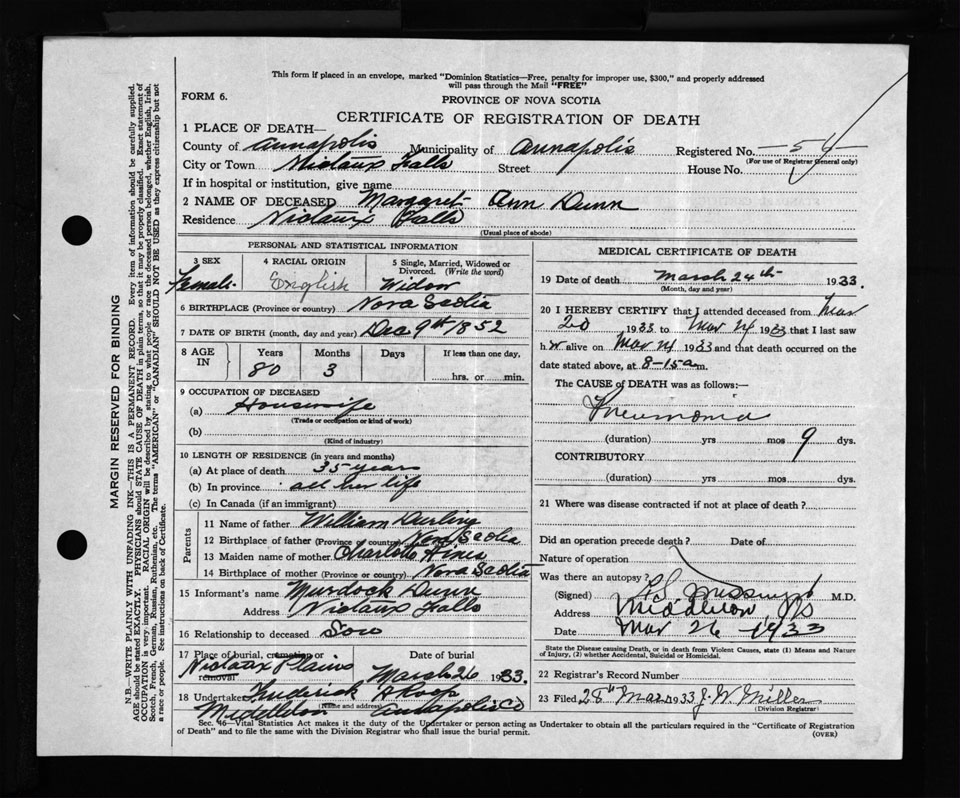 This form if placed in an envelope, marked "Dominion Statistics—Free, penalty for improper use, $300," and properly addressed
will pass through the Mail "FREE"
FORM 6.
PROVINCE OF NOVA SCOTIA
CERTIFICATE OF REGISTRATION OF DEATH
1 PLACE OF DEATH—
County of Annapolis Municipality of Annapolis Registered No. 54
(For use of Registrar General only)
City or Town Nictaux Falls Street House No.
If in hospital or institution, give name
2 NAME OF DECEASED Margaret Ann Dunn
Residence Nictaux Falls
(Usual place of abode)
PERSONAL AND STATISTICAL INFORMATION
3 SEX
Female
4 RACIAL ORIGIN
English
5 Single, Married, Widowed or
Divorced. (Write the word)
Widow
6 BIRTHPLACE (Province or country) Nova Scotia
7 DATE OF BIRTH (month, day and year) Dec 9th 1852
8 AGE IN
Years Months Days If less than one day,
80 3 hrs. or min.
9 OCCUPATION OF DECEASED
(a) Housewife
(Trade or occupation or kind of work)
(b)
(Kind of industry)
10 LENGTH OF RESIDENCE (in years and months)
(a) At place of death 35 years
(b) In province all her life
(c) In Canada (if an immigrant)
Parents
11 Name of father William Durling
12 Birthplace of father (Province or country) Nova Scotia
13 Maiden name of mother Charlotte Hines
14 Birthplace of mother (Province or country) Nova Scotia
15 Informant's name Murdock Dunn
Address Nictaux Falls
16 Relationship to deceased Son
17 Place of burial, cremation or removal Date of burial
Nictaux Plains March 26 1933.
18 Undertaker Frederick Roop
(Name and address)
Middleton Annapolis Co
MEDICAL CERTIFICATE OF DEATH
19 Date of death March 24th 1933.
(Month, day and year)
20 I HEREBY CERTIFY that I attended deceased from Mar
20 1933 to Mar 24 1933 that I last saw
h er alive on Mar 24 1933 and that death occurred on the
date stated above, at 8-15 a m.
The CAUSE OF DEATH was as follows:—
Pneumonia
(duration) yrs mos 9 dys.
CONTRIBUTORY
(duration) yrs mos dys.
21 Where was disease contracted if not at place of death?
Did an operation precede death? Date of
Nature of operation
Was there an autopsy?
(Signed) M.D.
Address Middleton NS
Date Mar 26 1933
State the Disease causing Death, or in death from Violent Causes, state (1) Means and Nature
of Injury, (2) whether Accidental, Suicidal or Homicidal.
22 Registrar's Record Number
23 Filed 28th Mar 1933 J. W. Miller
(Division Registrar)
Sec. 46—Vital Statistics Act makes it the duty of the Undertaker or person acting as Undertaker to obtain all the particulars required in the "Certificate of Registration
of Death" and to file the same with the Division Registrar who shall issue the burial permit.
(OVER)
MARGIN RESERVED FOR BINDING
N.B.—WRITE PLAINLY WITH UNFADING INK—THIS IS A PERMANENT RECORD. Every item of information should be carefully supplied.
AGE should be stated EXACTLY. PHYSICIANS should STATE CAUSE OF DEATH in plain terms, so that it may be properly classified. Exact statement of
OCCUPATION is very important. RACIAL ORIGIN will be described by stating to what people or race the deceased person belonged, whether English, Irish,
Scotch, French, German, Russian, Ruthenian, etc. The terms "AMERICAN" or "CANADIAN" SHOULD NOT BE USED as they express citizenship but not
a race or people. See instructions on back of Certificate.